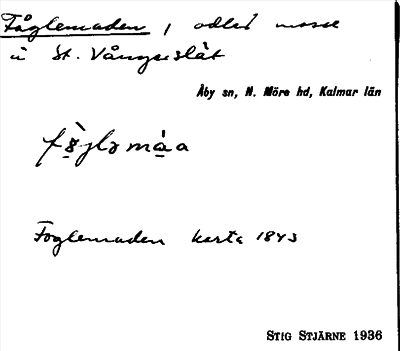 Fåglemaden, odlad mosse
i St. Vångerslät
Åby sn, N. Möre hd, Kalmar län
Foglemaden karta 1843
STIG STJÄRNE 1936